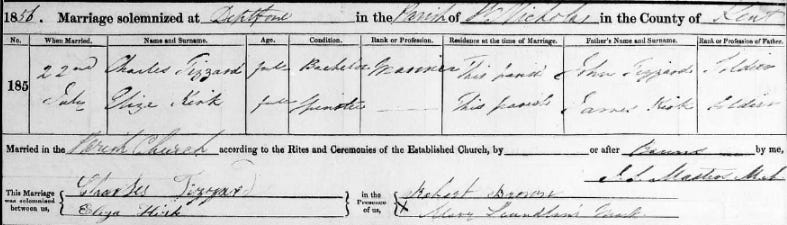 1856. Marriage solemnized at Deptford in the Parish of St Nicholas in the County of Kent
No. When Married. Name and Surname. Age. Condition. Rank or Profession. Residence at the time of Marriage. Father's Name and Surname. Rank or Profession of Father.
185 22nd Charles Tizzard full Bachelor Mariner This parish John Tizzard Soldier
July Elize Kirk full Spinster — This parish James Kirk Soldier
Married in the Parish Church according to the Rites and Ceremonies of the Established Church, by or after Banns by me,
This Marriage was solemnized between us, Charles Tizzard Eliza Kirk in the Presence of us, Robert Brown X Mary Mark